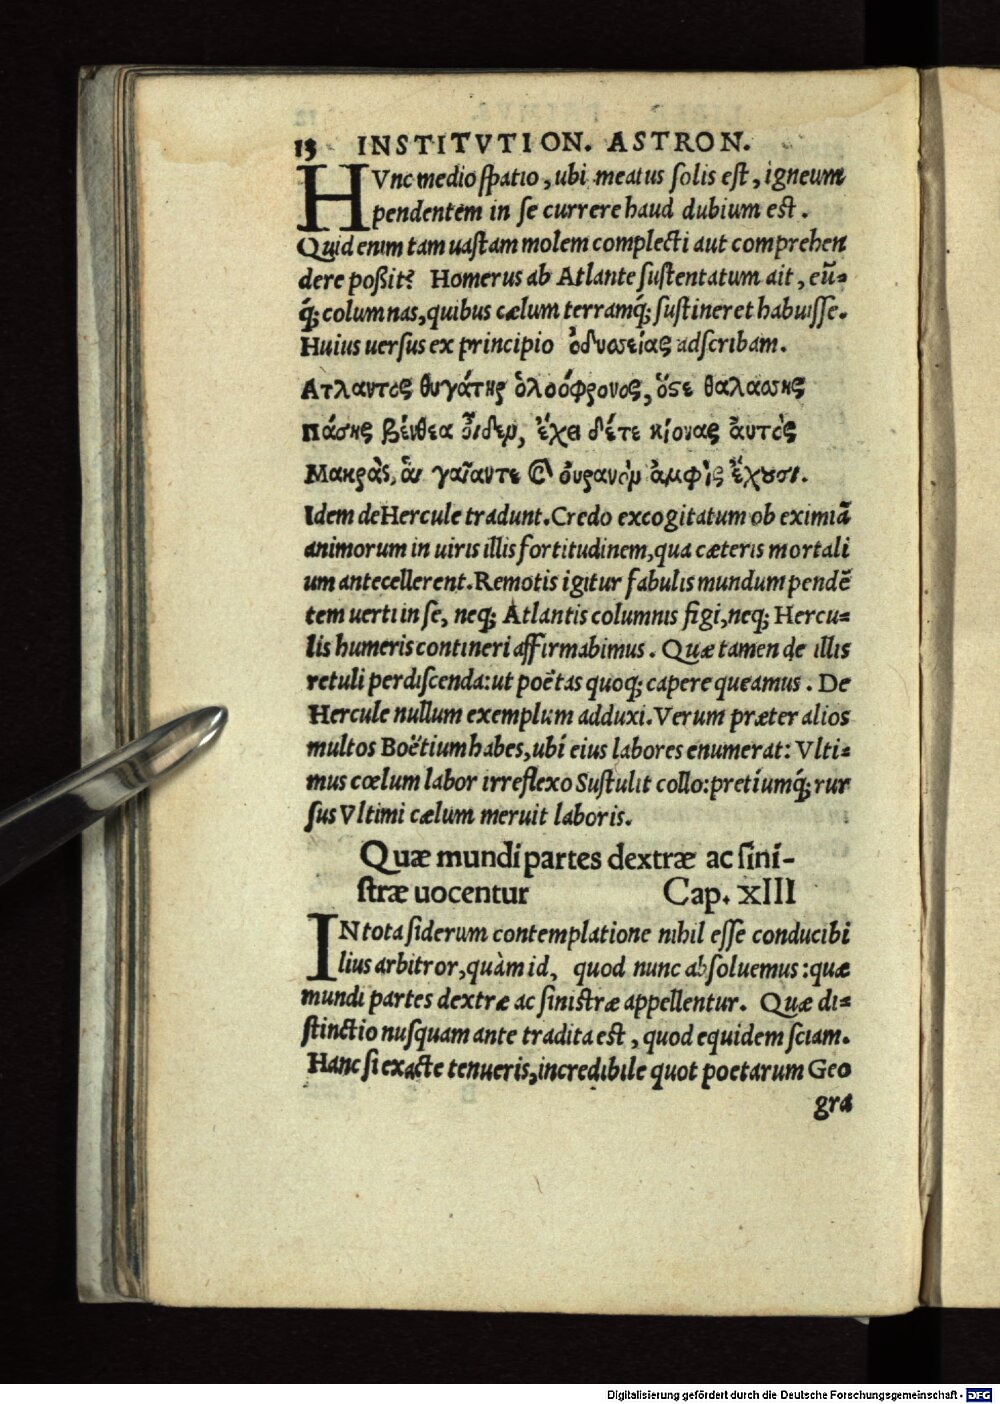 13 INSTITVTION. ASTRON.
HVnc medio spatio, ubi meatus solis est, igneum
pendentem in se currere haud dubium est.
Quid enim tam uastam molem complecti aut comprehen
dere poßit? Homerus ab Atlante sustentatum ait, eũ=
q́; columnas, quibus cælum terramq́; sustineret habuisse.
Huius uersus ex principio ὀδυσσείας adscribam.
Ατλαντος θυγάτηρ ὀλοόφρονος, ὅστε θαλάσσης
Πάσης βένθεα οἶδεν, ἔχει δέ τε κίονας ἀυτὸς
Μακρὰς, ἃι γαῖαντε καὶ ὀυρανὸν ἀμφὶς ἔχουσι.
Idem de Hercule tradunt. Credo excogitatum ob eximiã
animorum in uiris illis fortitudinem, qua cæteris mortali
um antecellerent. Remotis igitur fabulis mundum pendẽ
tem uerti in se, neq; Atlantis columnis figi, neq; Hercu=
lis humeris contineri affirmabimus. Quæ tamen de illis
retuli perdiscenda: ut poëtas quoq; capere queamus. De
Hercule nullum exemplum adduxi. Verum præter alios
multos Boëtium habes, ubi eius labores enumerat: Vlti=
mus cœlum labor irreflexo Sustulit collo: pretiumq́; rur
sus Vltimi cælum meruit laboris.
Quæ mundi partes dextræ ac sini-
stræ uocentur Cap. XIII
IN tota siderum contemplatione nihil esse conducibi
lius arbitror, quàm id, quod nunc absoluemus: quæ
mundi partes dextræ ac sinistræ appellentur. Quæ di=
stinctio nusquam ante tradita est, quod equidem sciam.
Hanc si exacte tenueris, incredibile quot poetarum Geo
gra
Digitalisierung gefördert durch die Deutsche Forschungsgemeinschaft - DFG